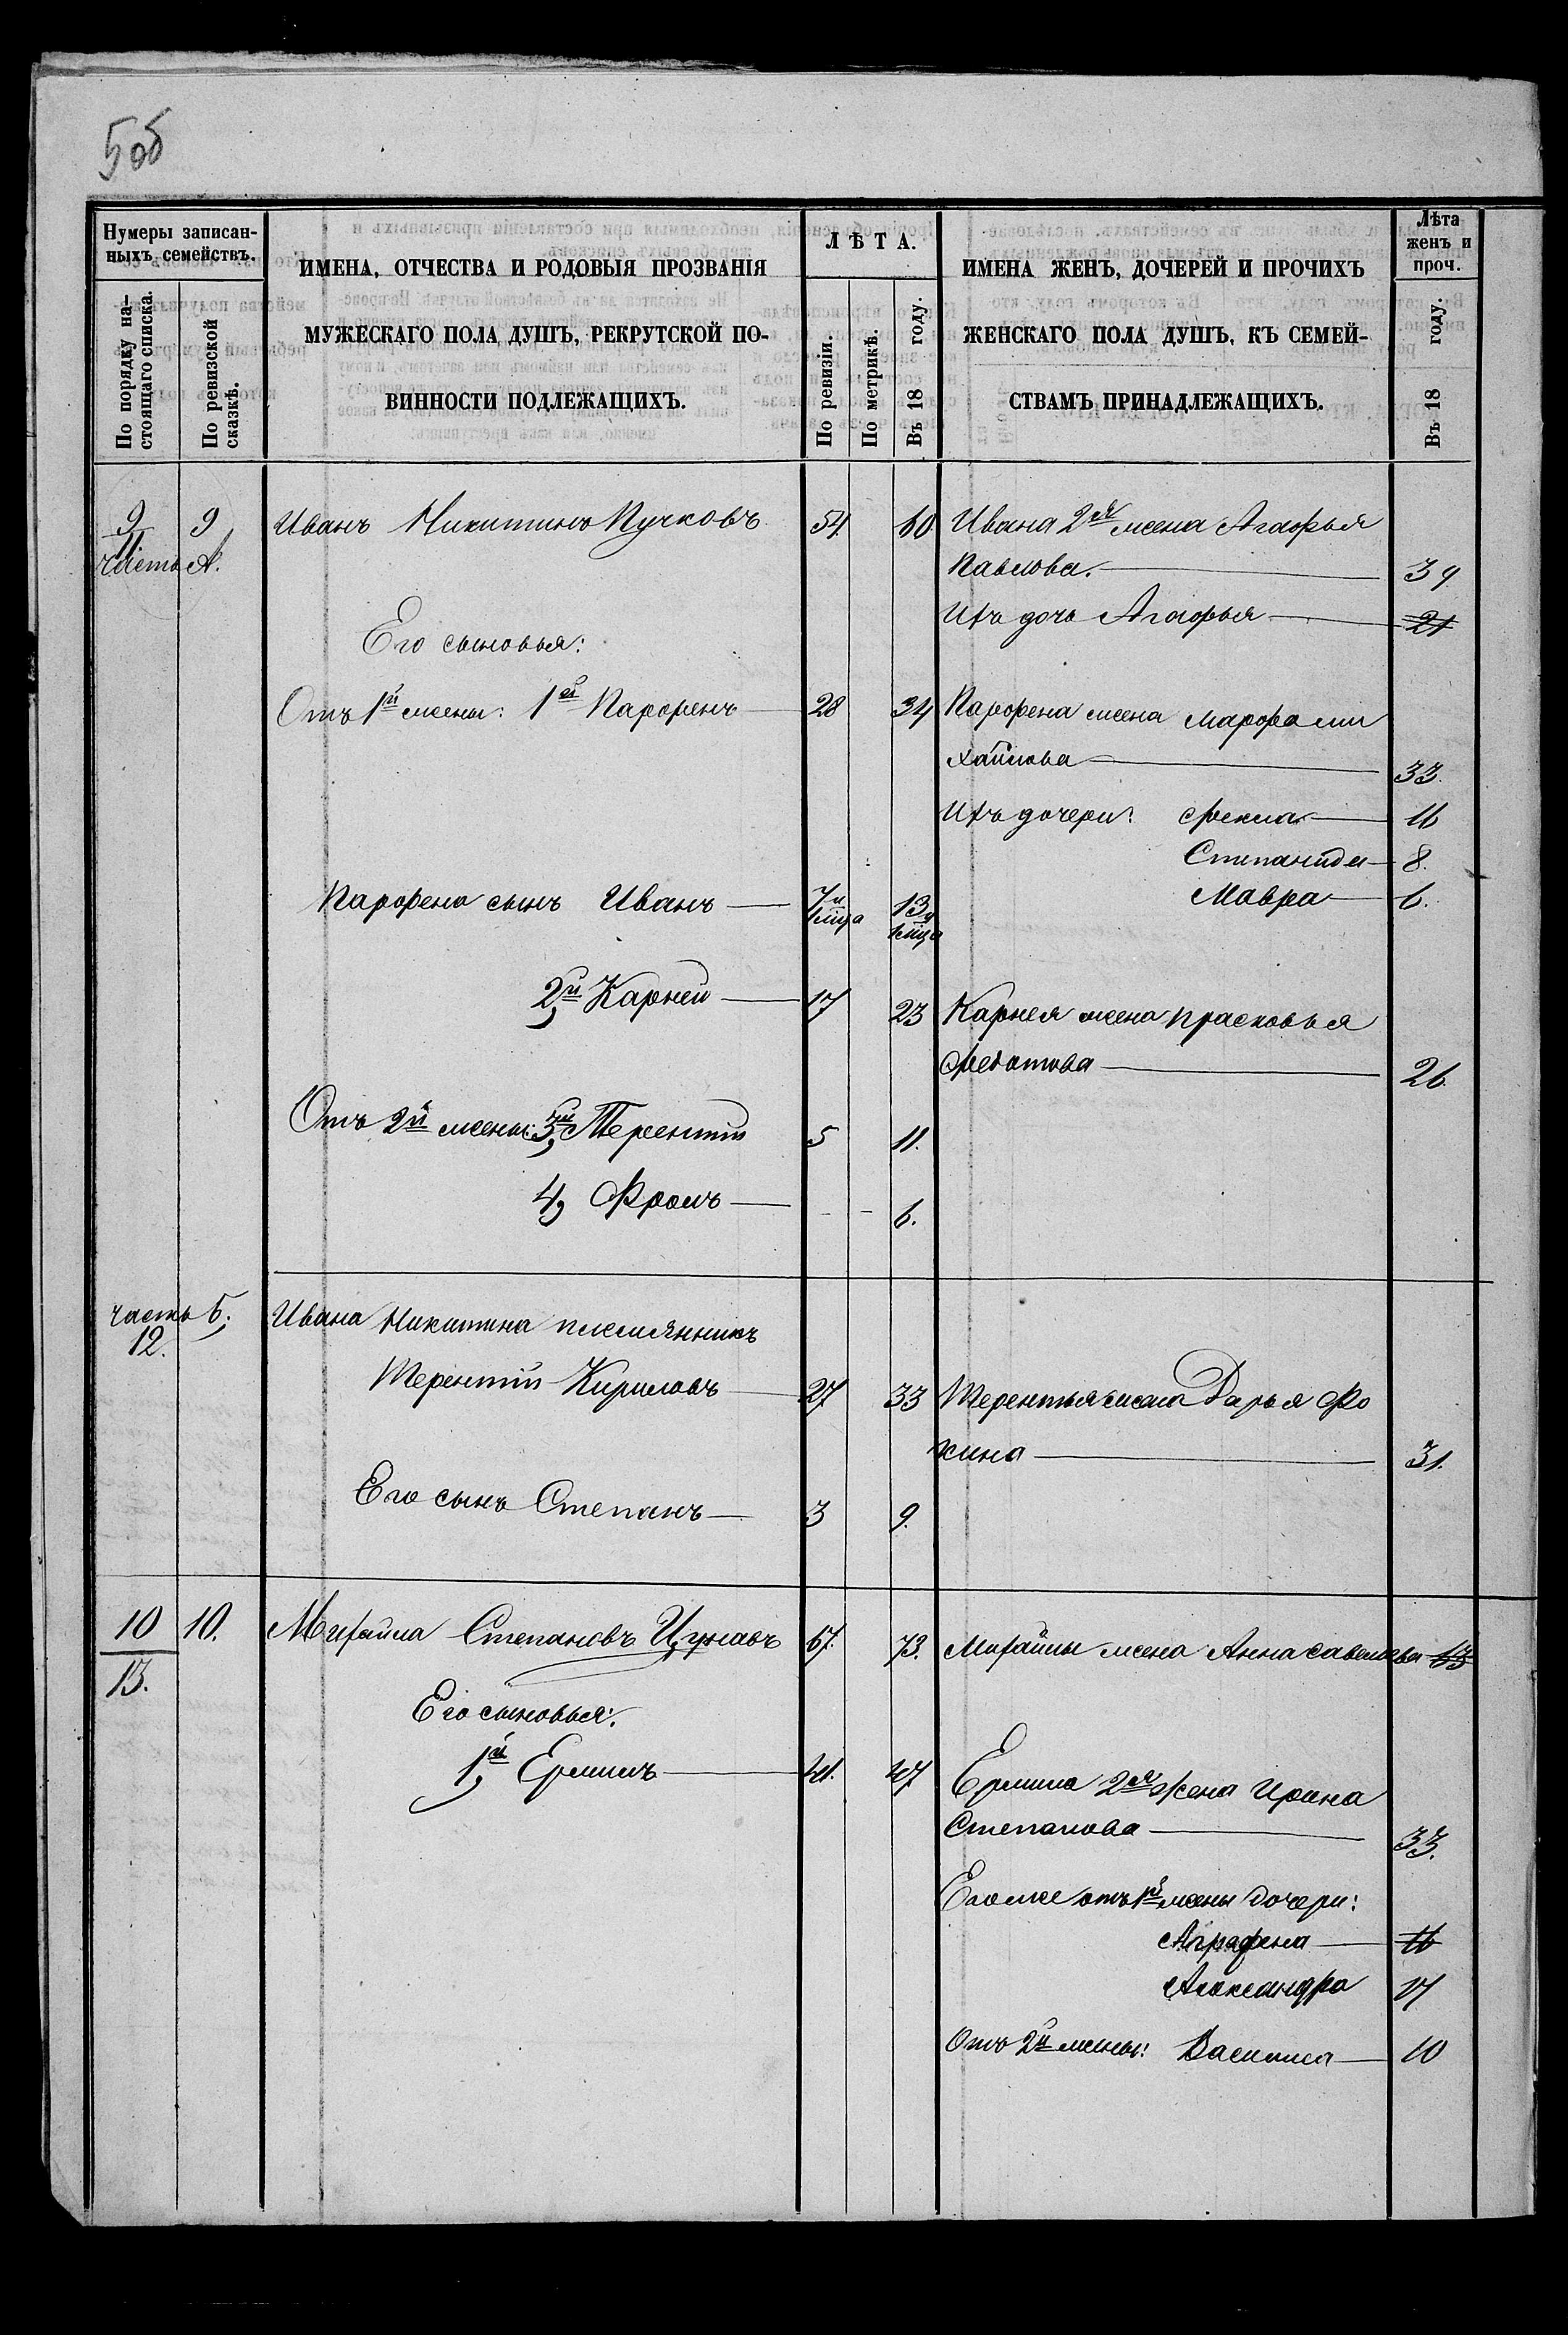 5об
Нумеры записан-
ныхъ семействъ.
По порядку на-
стоящаго списка.
По ревизской
сказкѣ.
ИМЕНА, ОТЧЕСТВА И РОДОВЫЯ ПРОЗВАНІЯ
МУЖЕСКАГО ПОЛА ДУШЪ, РЕКРУТСКОЙ ПО-
ВИННОСТИ ПОДЛЕЖАЩИХЪ.
ЛѢТА.
По ревизіи.
По метрикѣ.
Въ 18 году.
ИМЕНА ЖЕНЪ, ДОЧЕРЕЙ И ПРОЧИХЪ
ЖЕНСКАГО ПОЛА ДУШЪ, КЪ СЕМЕЙ-
СТВАМЪ ПРИНАДЛЕЖАЩИХЪ.
Лѣта
женъ и
проч.
Въ 18 году.
9 9 Иванъ Никитинъ Пучковъ 54. 60 Ивана 2я жена Агафья
11
часть А. Павлова. 39
Ихъ дочь Агафья 21
Его сыновья:
Отъ 1й жены: 1й Парфенъ 28 34 Парфена жена Марфа Ми
хайлова 33.
Ихъ дочери: Фекла 11
Степанида 8.
Мавра 6.
Парфена сынъ Иванъ 7 и 1 мца 13 и 1 мца
2й Карней 17 23 Карнея жена Прасковья
Федотова 26
Отъ 2й жены: 3й Терентій 5 11.
4, Фролъ - - 6.
часть Б; Ивана Никитина племянникъ
12.
Терентій Кириловъ 27 33 Терентья жена Дарья Фо
кина 31.
Его сынъ Степанъ 3 9.
10 10. Михайла Степановъ 67. 73. Михайлы жена Анна Савельева 63
13.
Его сыновья:
1й Ермилъ 41. 47 Ермила 2я жена Ирина
Степанова 33.
Его же отъ 1й жены дочери:
Аграфена 16
Александра 17
Отъ 2й жены: Василиса 10